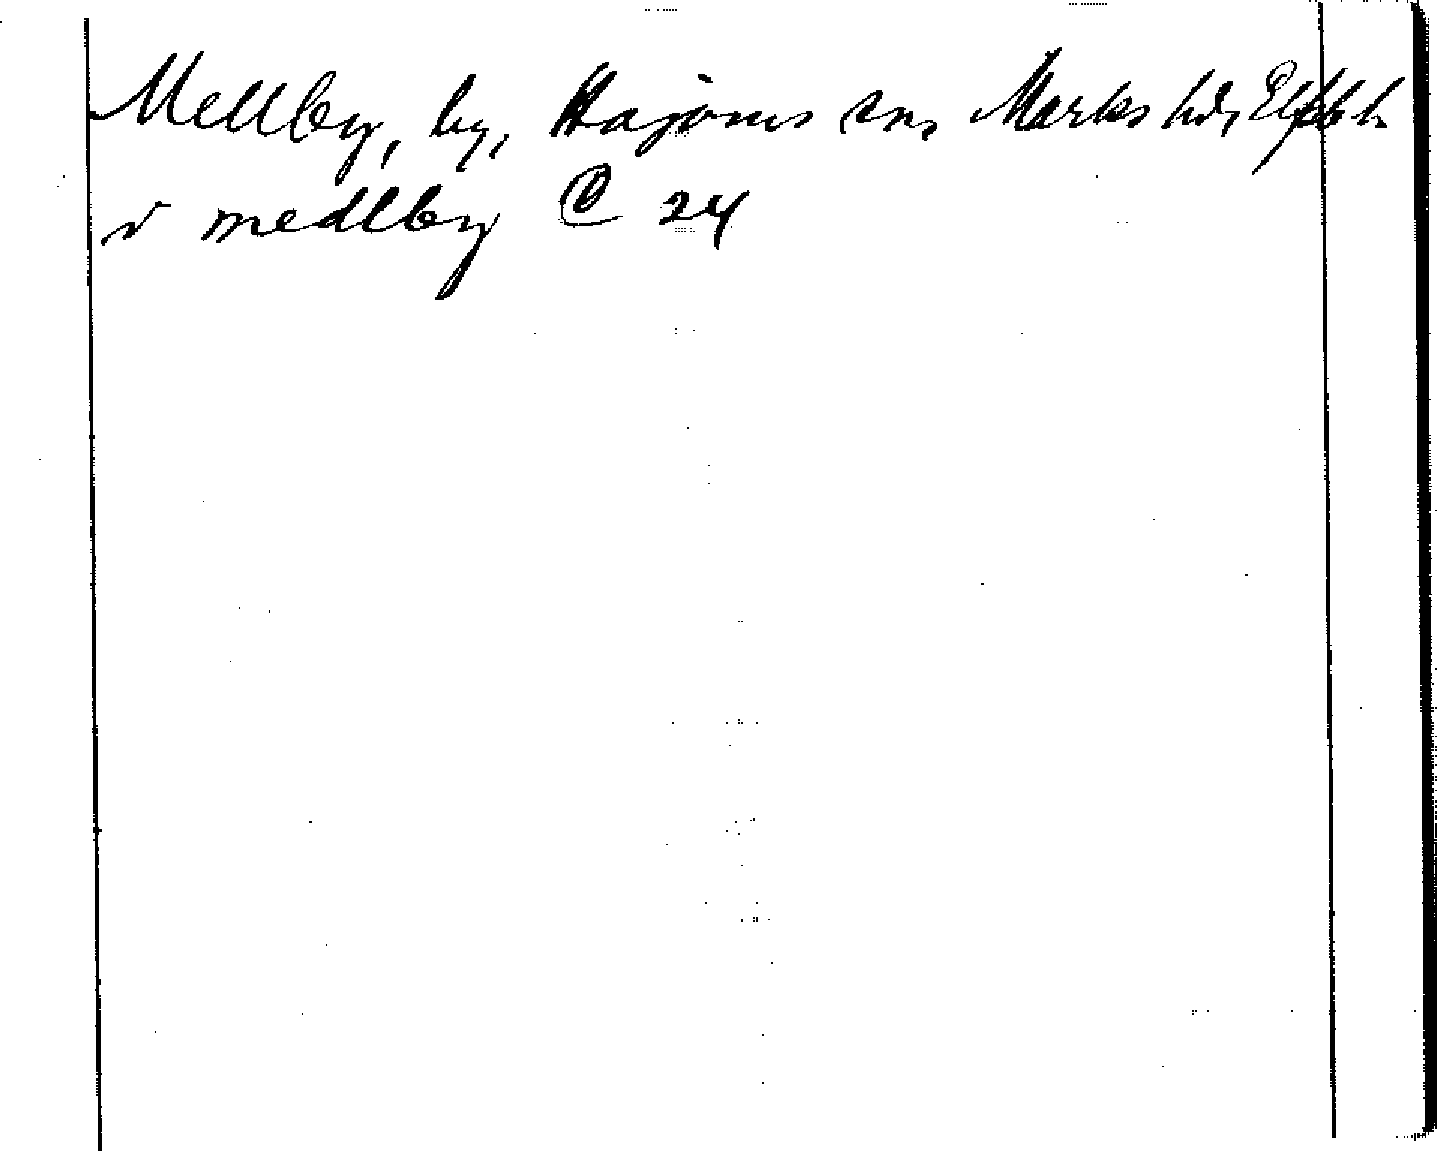 Mellby, by, Hajoms sn, Marks hd, Elfsb l.
v medlby C 24